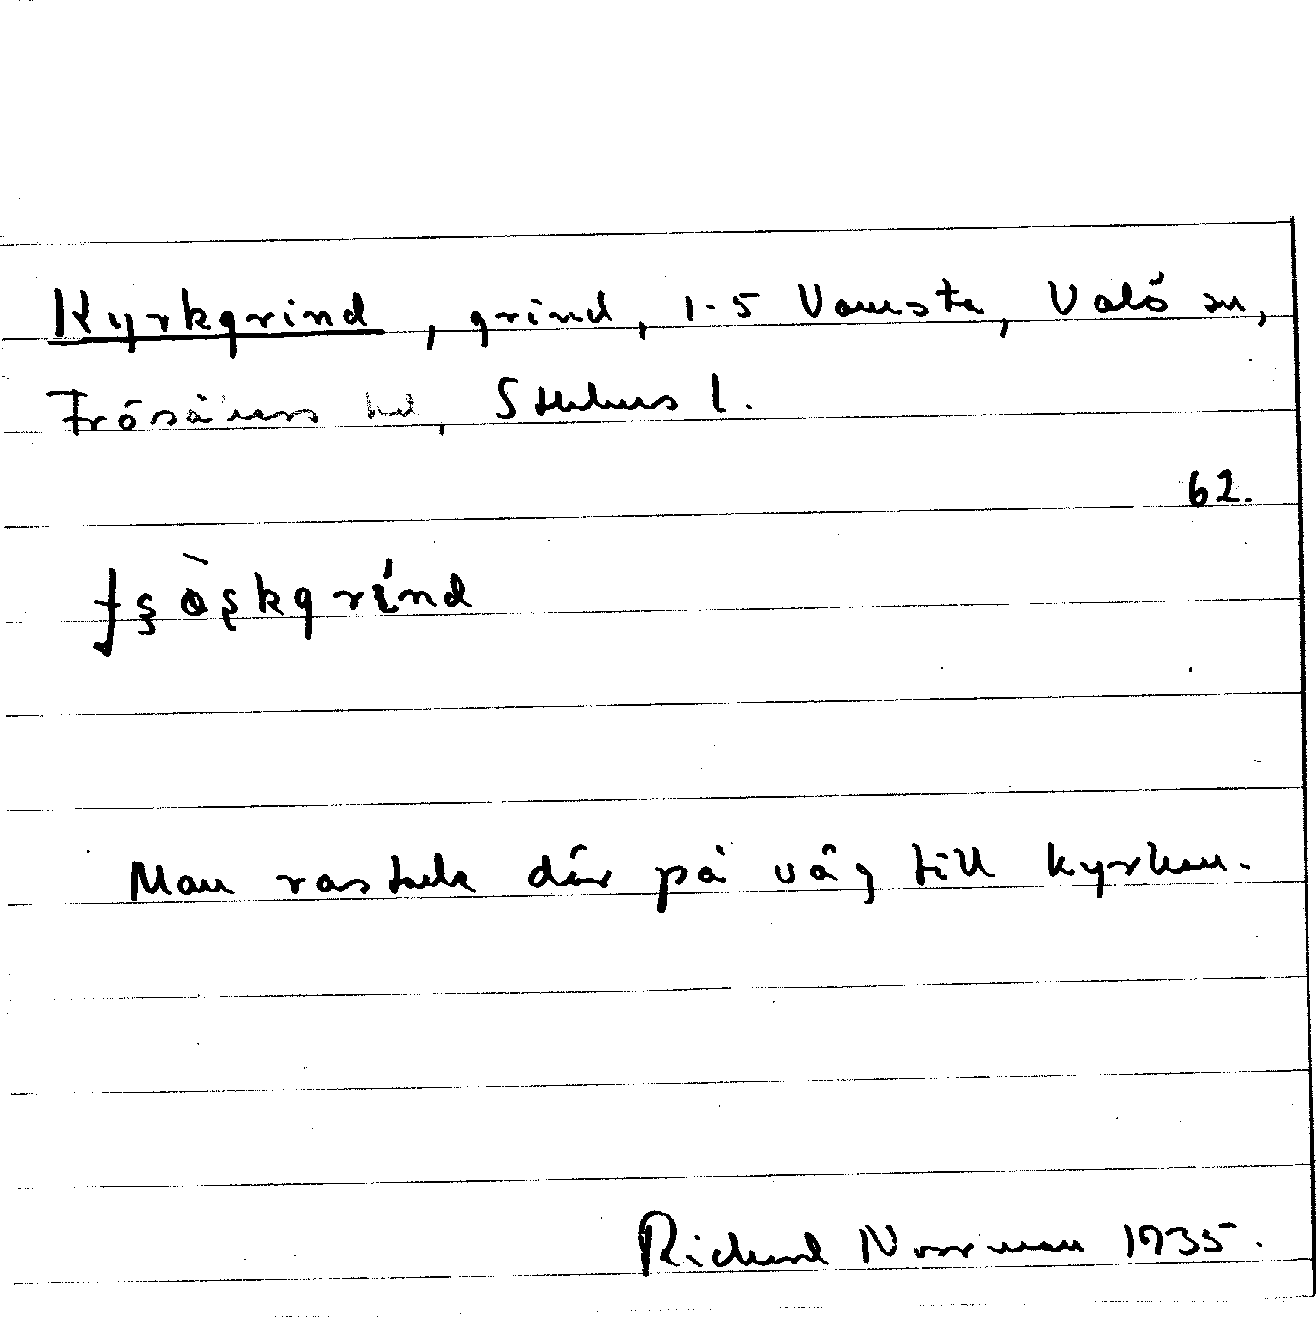 Kyrkgrind, grind, 1-5 Vamsta, Valö sn,
Frösåkers hd, Sthlms l.
62.
Man rastade där på väg till kyrkan.
Richard Norrman 1935.